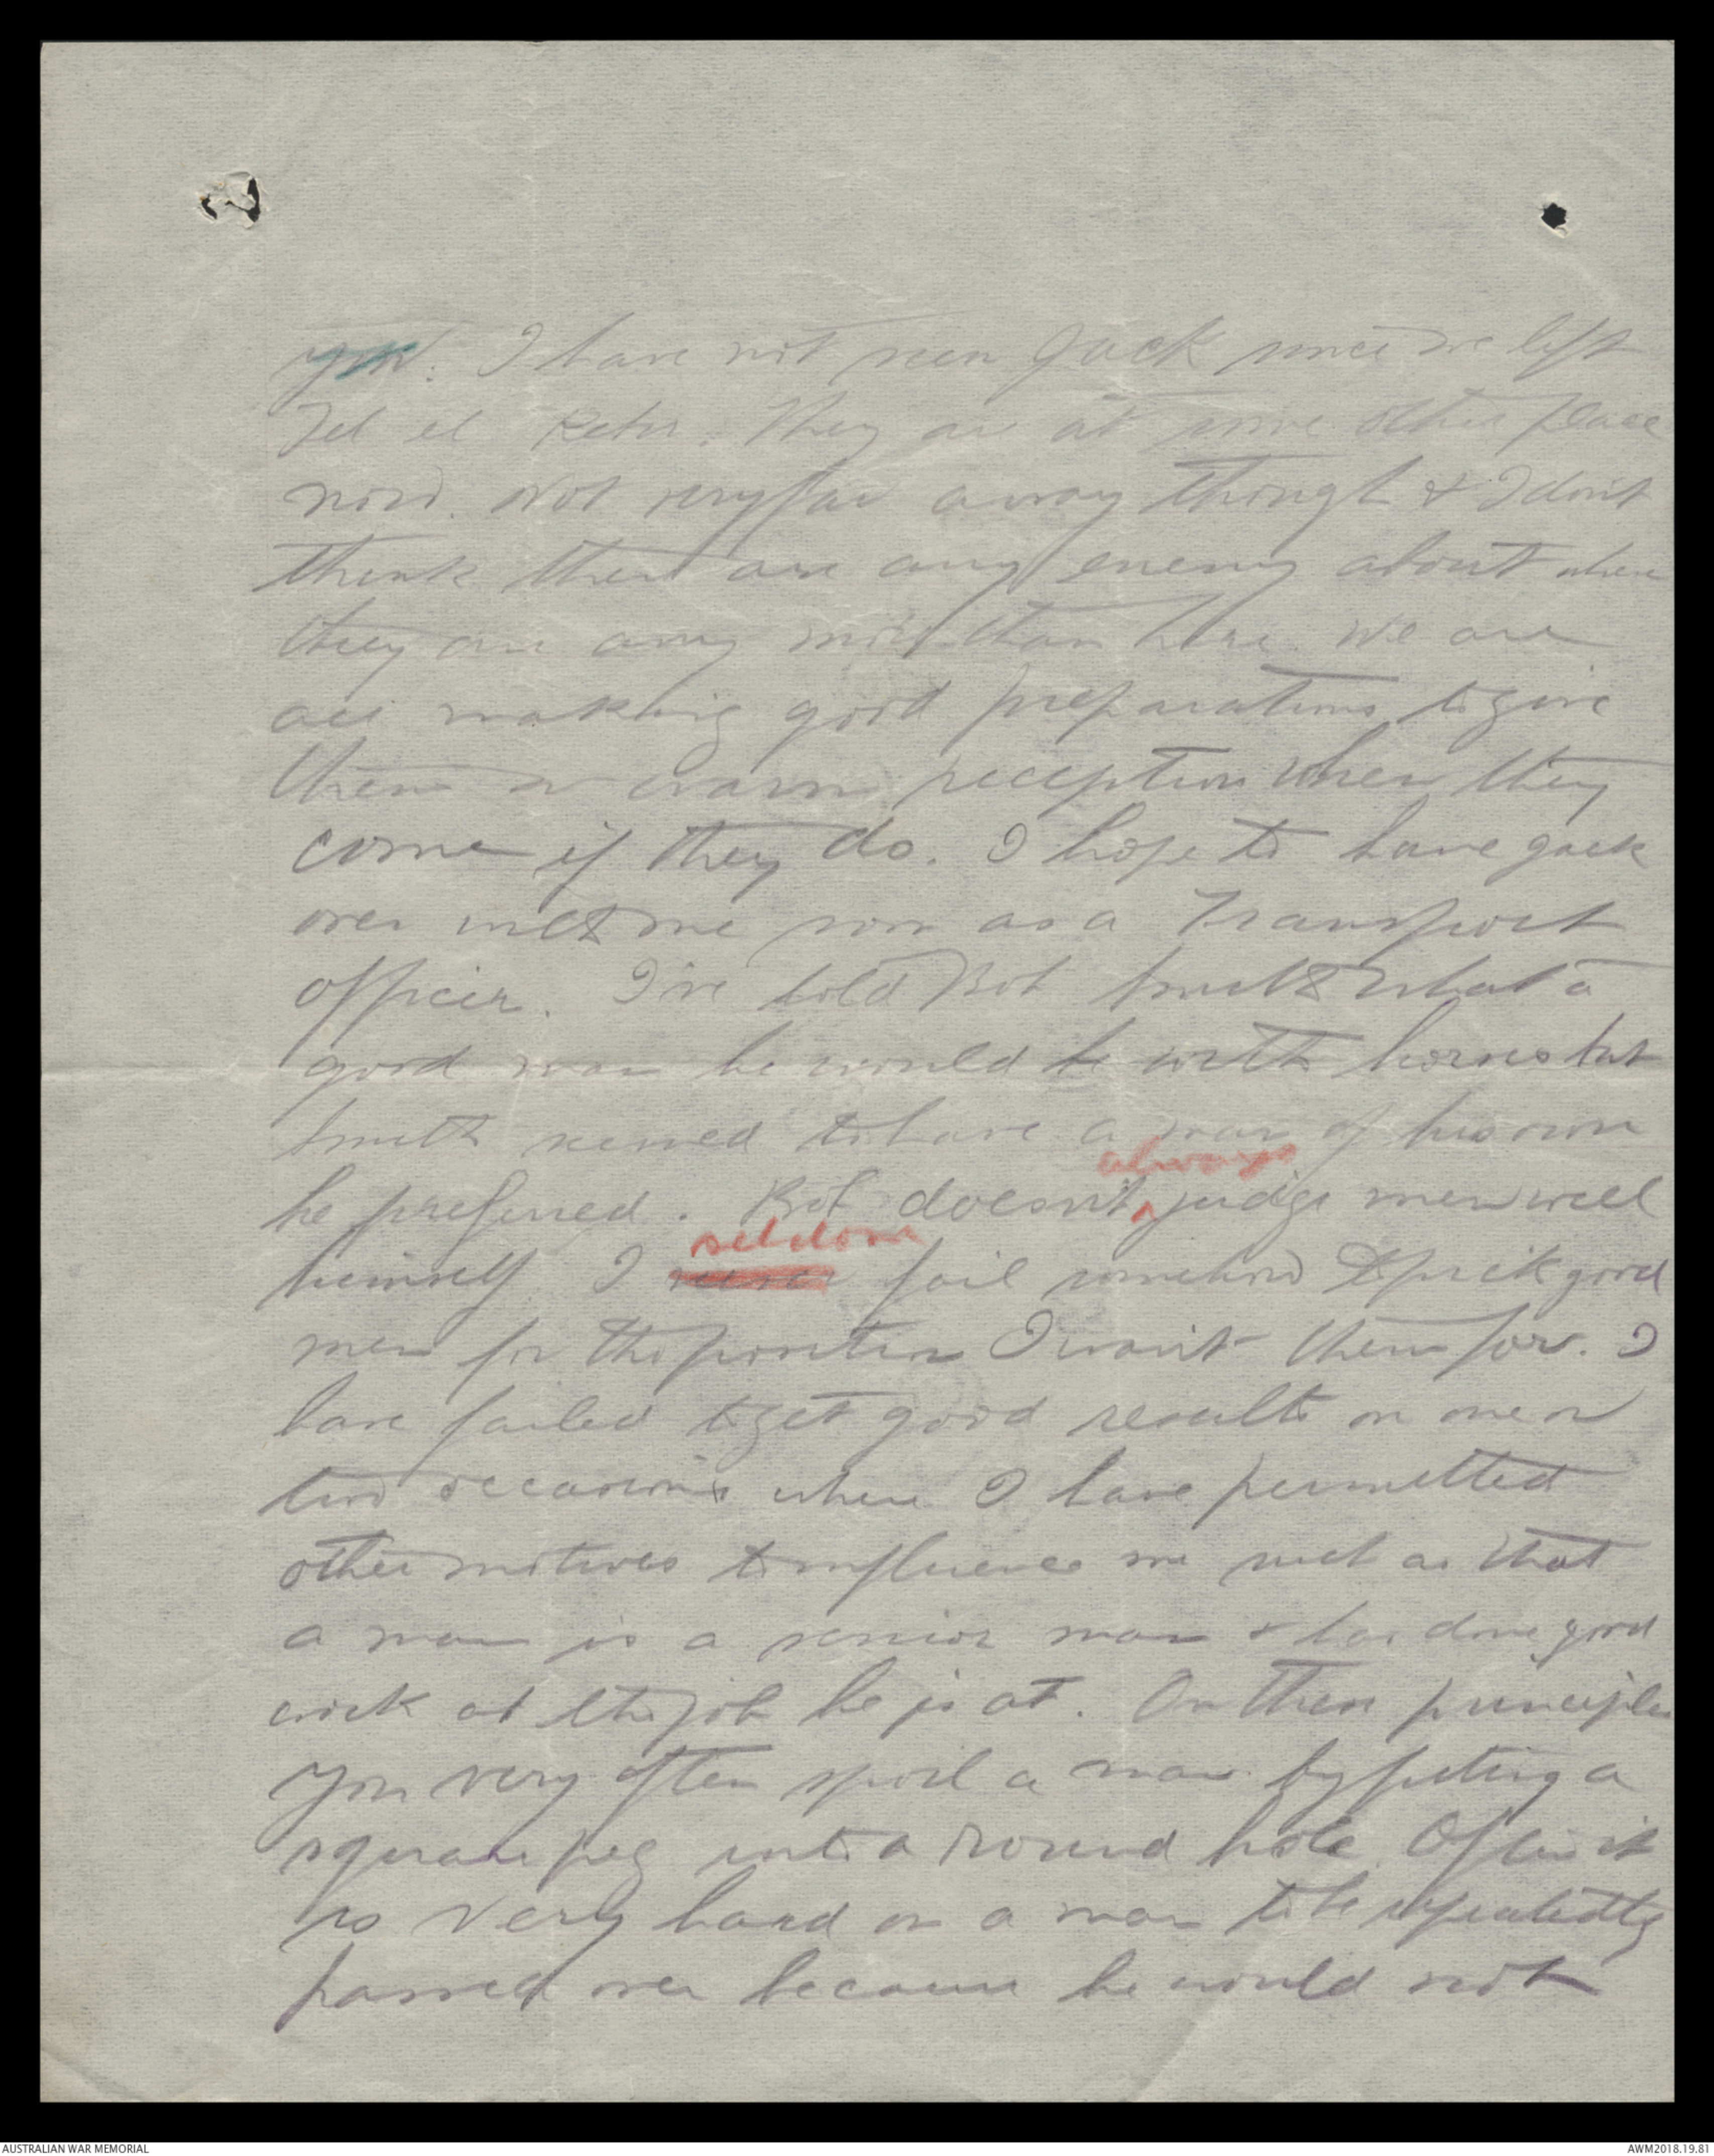 you. I have not seen Jack since we left
Tel el Kebir. They are at some other place
now. Not very far away though & I don't
think there are any enemy about where
they are any more than here. We are
all making good preparations to give
them a warm reception when they
come if they do. I hope to have Jack
over with me soon as a Transport
officer. I've told Bob Smith what a
good man he would be with horses but
Smith seemed to have a man of his own
always
he preferred. Bob doesn't judge men well
seldom
himself. I never fail somehow to pick good
men for the position I want them for. I
have failed to get good results on one or
two occasions where I have permitted
other motives to influence me such as that
a man is a senior man & has done good
work at the job he is at. On these principles
you very often spoil a man by puting a
square peg into a round hole. Often it
is very hard on a man to be repeatedly
passed over because he would not
AUSTRALIAN WAR MEMORIAL
AWM2018.19.81